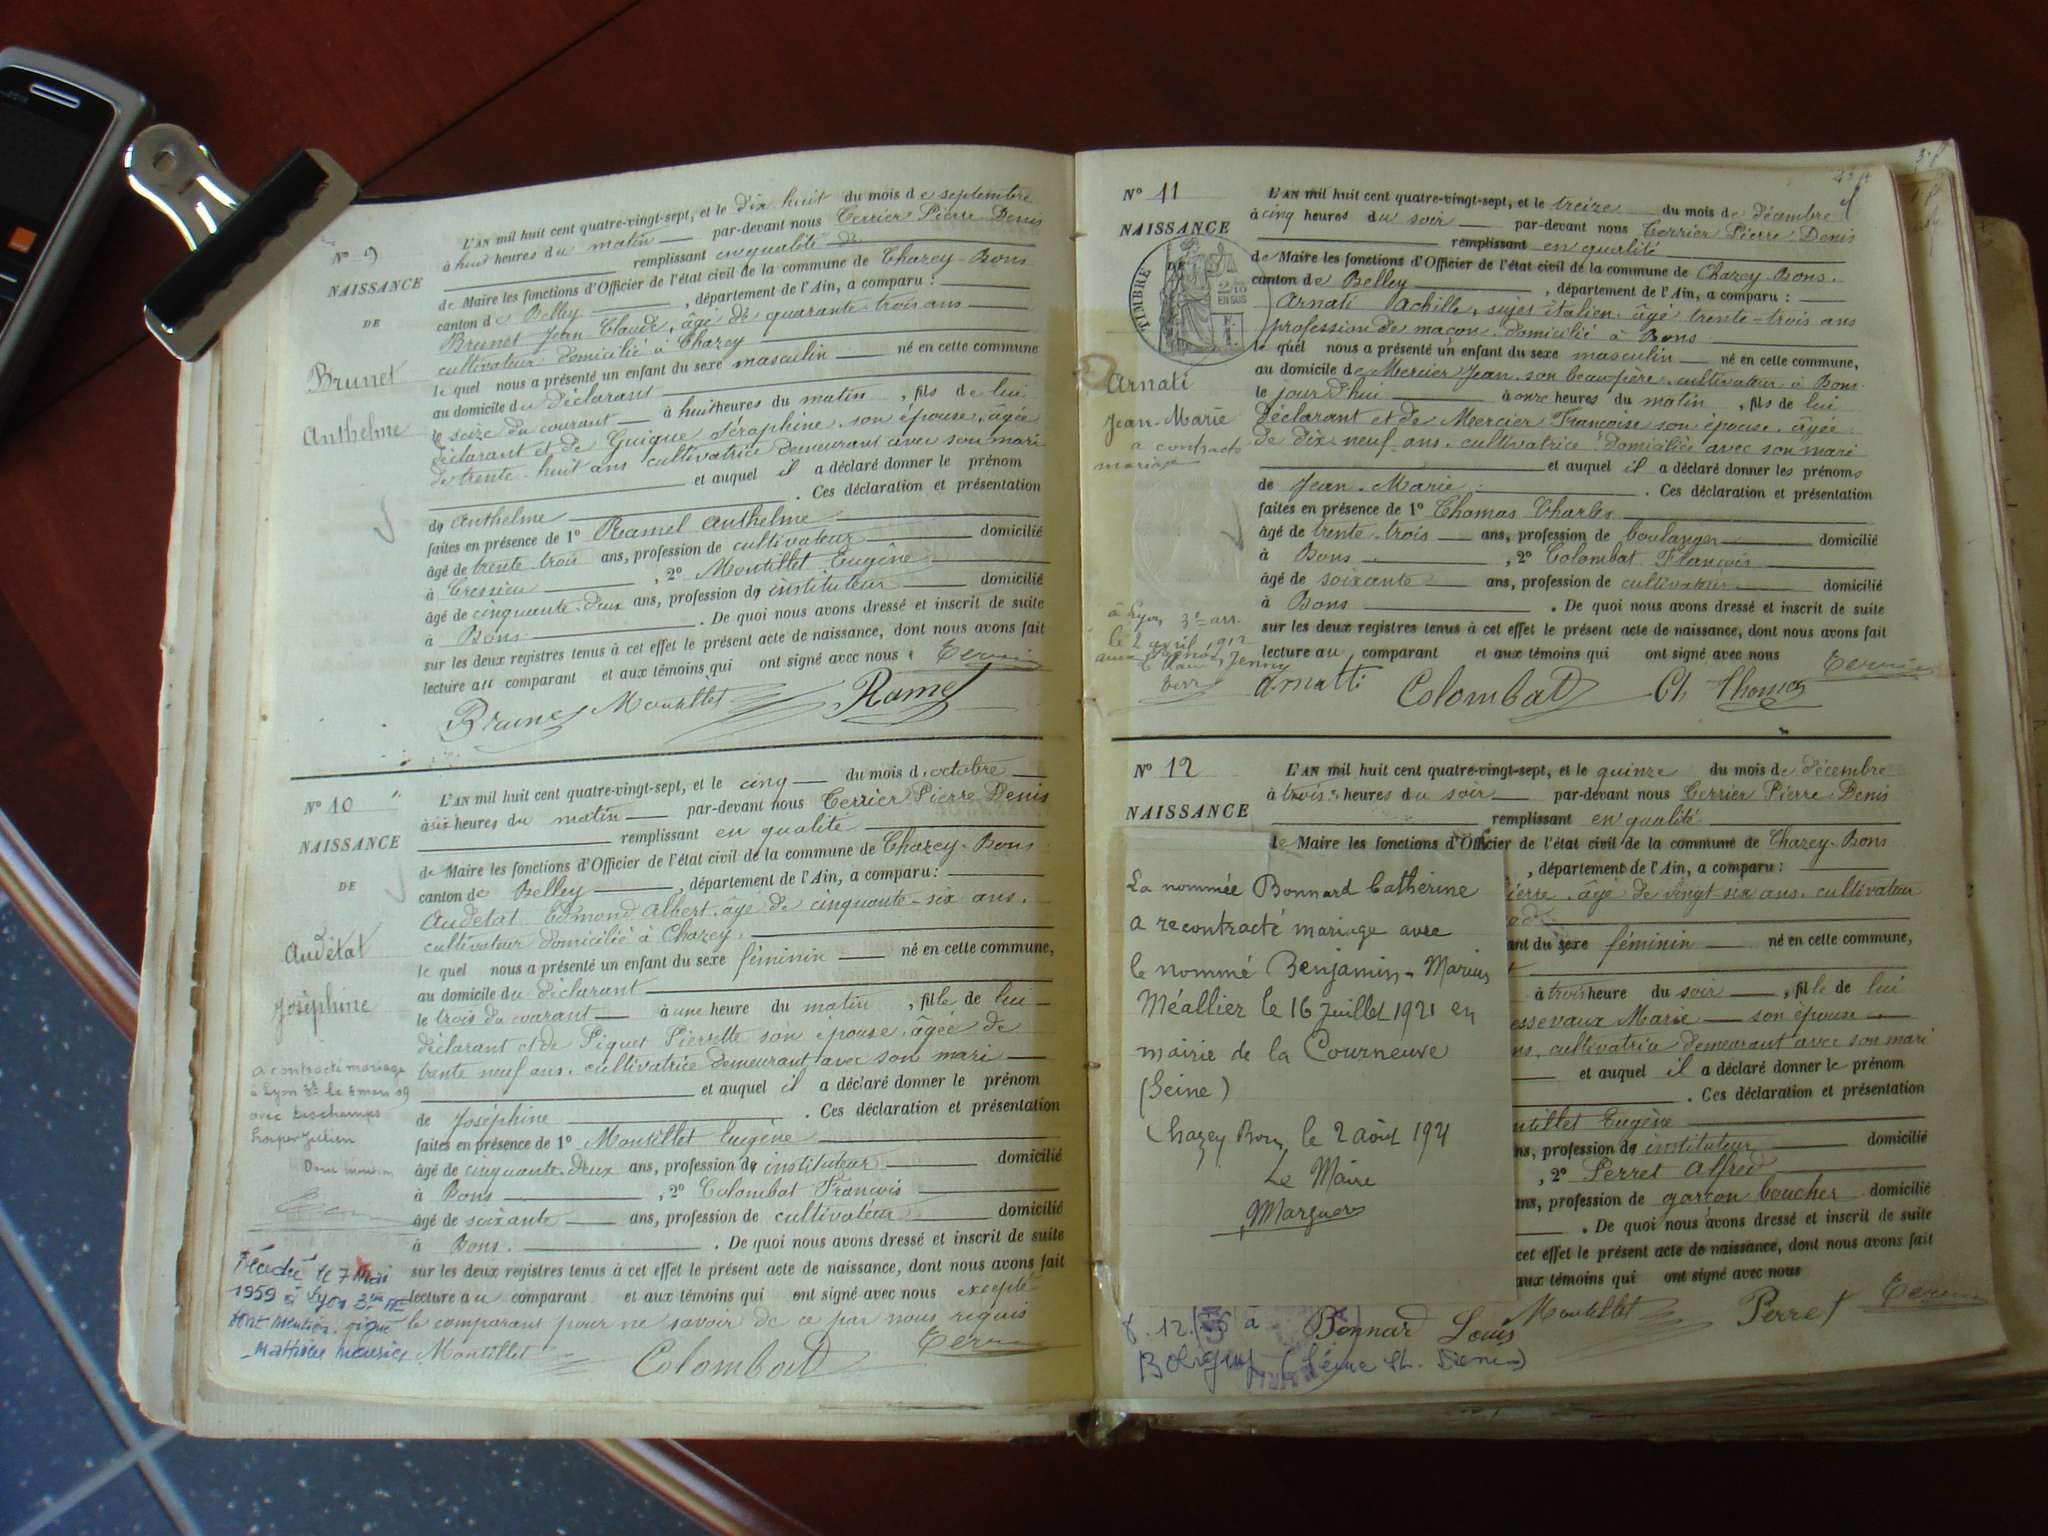 N° 9
NAISSANCE
DE
Brunet
Anthelme
L'AN mil huit cent quatre-vingt-sept, et le dix huit du mois de septembre
à huit heures du matin par-devant nous Terrier Pierre Denis
remplissant en qualité de
de Maire les fonctions d'Officier de l'état civil de la commune de Chazey-Bons
canton de Belley, département de l'Ain, a comparu :
Brunet Jean Claude, âgé de quarante-trois ans
cultivateur domicilié à Chazey
le quel nous a présenté un enfant du sexe masculin né en cette commune
au domicile du déclarant
le seize du courant à huit heures du matin, fils de lui
déclarant et de Guigue Séraphine, son épouse, âgée
de trente-huit ans cultivatrice demeurant avec son mari
et auquel il a déclaré donner le prénom
de Anthelme. Ces déclaration et présentation
faites en présence de 1° Ramel Anthelme
âgé de trente trois ans, profession de cultivateur domicilié
à Cressieu, 2° Montillet Eugène
âgé de cinquante-deux ans, profession de instituteur domicilié
à Bons. De quoi nous avons dressé et inscrit de suite
sur les deux registres tenus à cet effet le présent acte de naissance, dont nous avons fait
lecture au comparant et aux témoins qui ont signé avec nous
Brunet Montillet Ramel
N° 10
NAISSANCE
DE
Audétat
Joséphine
a contracté mariage
à Lyon 3e le 8 mars 19
avec Deschamps
Dont mention
Décédé le 7 Mai
1959 à Lyon 3me
dont mention.
L'AN mil huit cent quatre-vingt-sept, et le cinq du mois d'octobre
à six heures du matin par-devant nous Terrier Pierre Denis
remplissant en qualité
de Maire les fonctions d'Officier de l'état civil de la commune de Chazey-Bons
canton de Belley, département de l'Ain, a comparu :
Audétat Edmond Albert, âgé de cinquante-six ans,
cultivateur domicilié à Chazey.
le quel nous a présenté un enfant du sexe féminin né en cette commune,
au domicile du déclarant
le trois du courant à une heure du matin, fille de lui
déclarant et de Piquet Pierrette son épouse, âgée de
trente neuf ans, cultivatrice demeurant avec son mari
et auquel il a déclaré donner le prénom
de Joséphine. Ces déclaration et présentation
faites en présence de 1° Montillet Eugène
âgé de cinquante-deux ans, profession de instituteur domicilié
à Bons, 2° Colombat François
âgé de soixante ans, profession de cultivateur domicilié
à Bons. De quoi nous avons dressé et inscrit de suite
sur les deux registres tenus à cet effet le présent acte de naissance, dont nous avons fait
lecture au comparant et aux témoins qui ont signé avec nous excepté
le comparant pour ne savoir de ce par nous requis
Montillet Colombat
N° 11
NAISSANCE
TIMBRE
2/10
EN SUS
DE
Arnati
Jean-Marie
a contracté
mariage
à Lyon 3e arr.
le 2 avril 1912
L'AN mil huit cent quatre-vingt-sept, et le treize du mois de décembre
à cinq heures du soir par-devant nous Terrier Pierre Denis
remplissant en qualité
de Maire les fonctions d'Officier de l'état civil de la commune de Chazey-Bons.
canton de Belley, département de l'Ain, a comparu :
Arnati Achille, sujet italien, âgé trente-trois ans
profession de maçon domicilié à Bons
le quel nous a présenté un enfant du sexe masculin né en cette commune,
au domicile de Mercier Jean, son beau-père, cultivateur à Bons
le jour d'hui à onze heures du matin, fils de lui
déclarant et de Mercier Françoise son épouse, âgée
de dix-neuf ans, cultivatrice domiciliée avec son mari
et auquel il a déclaré donner les prénoms
de Jean-Marie. Ces déclaration et présentation
faites en présence de 1° Thomas Charles
âgé de trente-trois ans, profession de boulanger domicilié
à Bons, 2° Colombat François
âgé de soixante ans, profession de cultivateur domicilié
à Bons. De quoi nous avons dressé et inscrit de suite
sur les deux registres tenus à cet effet le présent acte de naissance, dont nous avons fait
lecture au comparant et aux témoins qui ont signé avec nous
Arnatti Colombat Ch Thomas
N° 12
NAISSANCE
L'AN mil huit cent quatre-vingt-sept, et le quinze du mois de décembre
à trois heures du soir par-devant nous Terrier Pierre Denis
remplissant en qualité
de Maire les fonctions d'Officier de l'état civil de la commune de Chazey-Bons
, département de l'Ain, a comparu :
ierre, âgé de vingt-six ans, cultivateur
ant du sexe féminin né en cette commune,
à trois heure du soir, fille de lui
essevaux Marie son épouse
ns, cultivatrice demeurant avec son mari
et auquel il a déclaré donner le prénom
. Ces déclaration et présentation
ntillet Eugène
ns, profession de instituteur domicilié
, 2° Perret Alfred
ans, profession de garçon boucher domicilié
. De quoi nous avons dressé et inscrit de suite
cet effet le présent acte de naissance, dont nous avons fait
aux témoins qui ont signé avec nous
Bonnard Louis Montillet Perret
La nommée Bonnard Catherine
a recontracté mariage avec
le nommé Benjamin-Marius
Méallier le 16 Juillet 1921 en
mairie de la Courneuve
(Seine)
Chazey Bons le 2 Août 1921
Le Maire
Bobigny (Seine St. Denis)